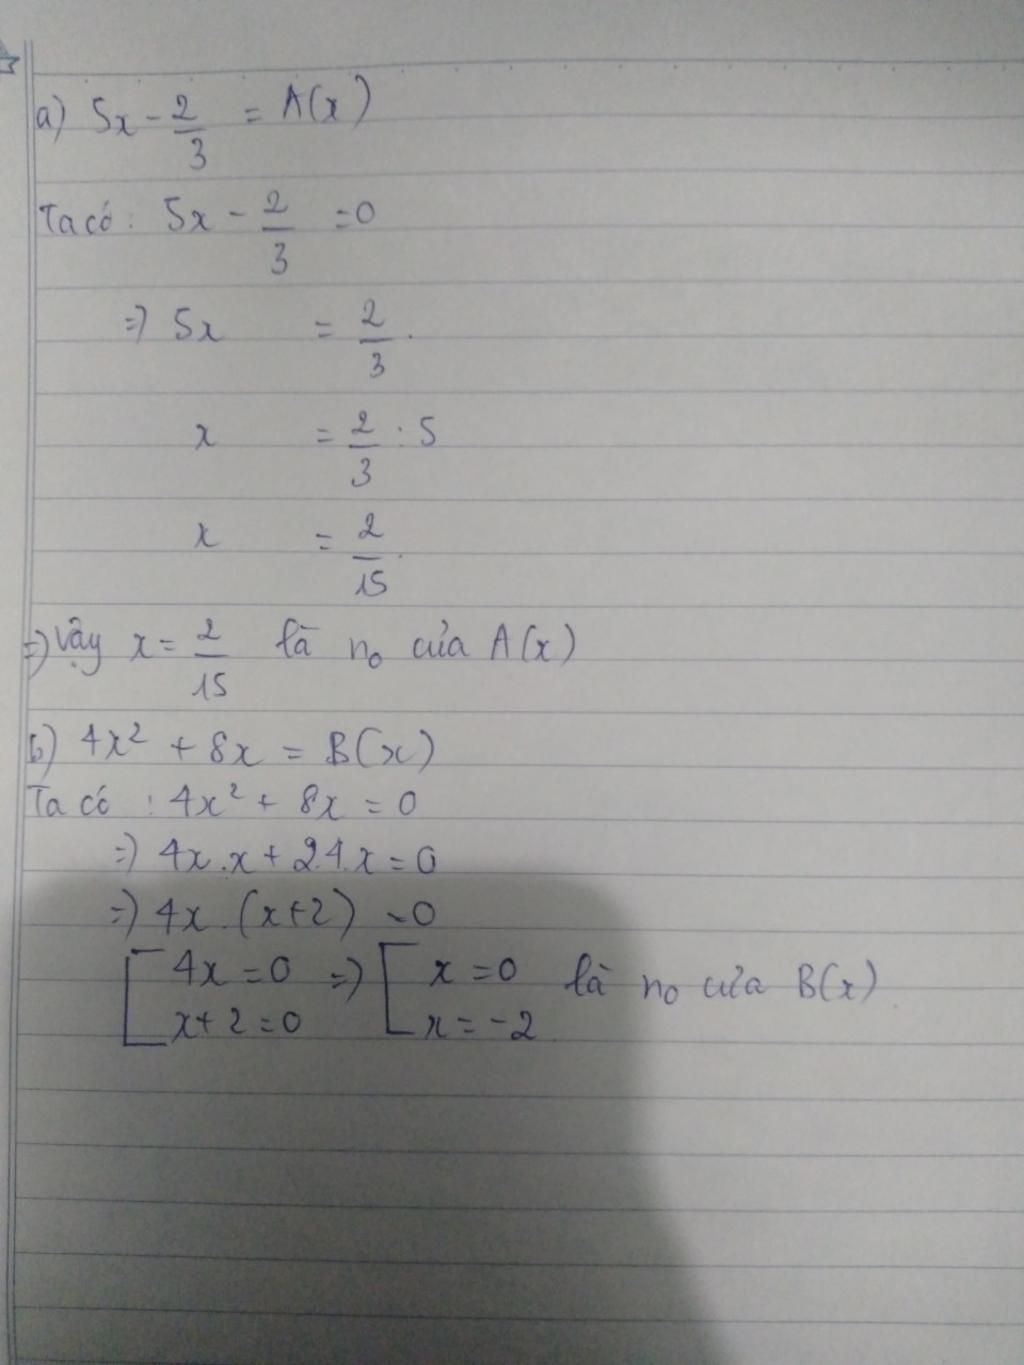 a) 5x - 2/3 = A(x)
Ta có : 5x - 2/3 = 0
=) 5x = 2/3 .
x = 2/3 : 5
x = 2/15 .
=) Vậy x = 2/15 là no của A(x)
b) 4x² + 8x = B(x)
Ta có : 4x² + 8x = 0
=) 4x.x + 2.4.x = 0
=) 4x.(x+2) = 0
[ 4x = 0 =) [ x = 0 là no của B(x).
x + 2 = 0 x = -2.